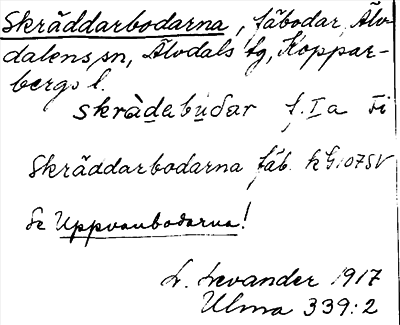 Skräddarbodarna, fäbodar, Älv-
dalens sn, Älvdals tg, Koppar-
bergs l.
skràdabudar f. I a ti
Skräddarbodarna fäb. kG107SV
Se Uppvanbodarna!
L. Levander 1917
Ulma 339:2